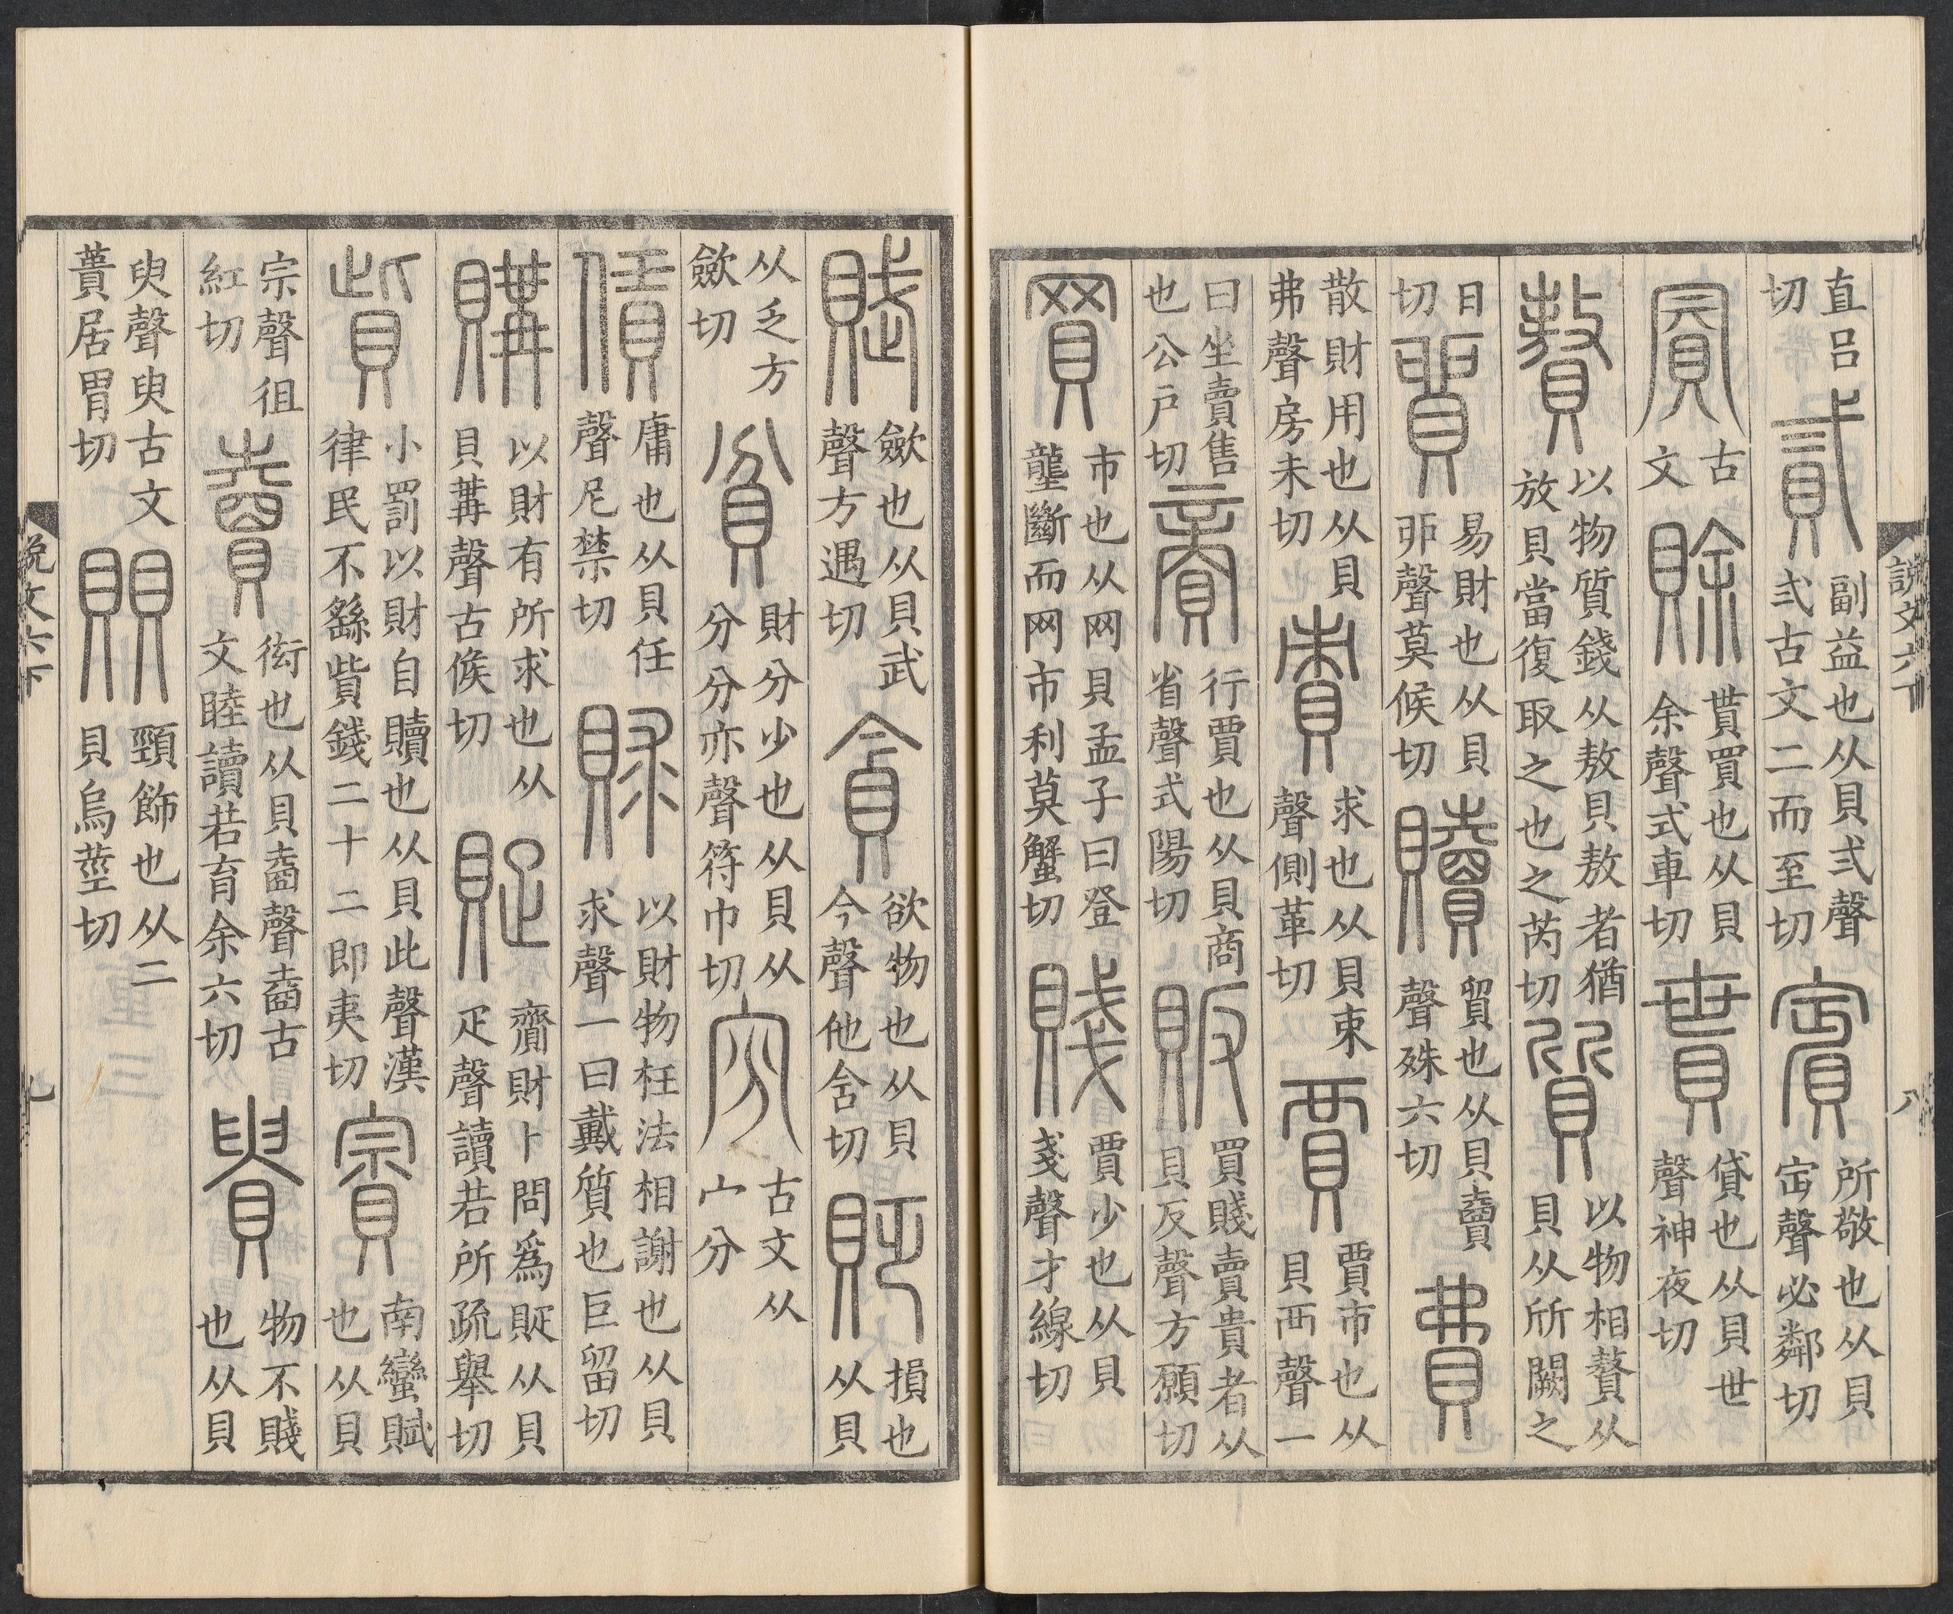 說文六下
八
直呂切貳副益也从貝弍聲弍古文二而至切賓所敬也从貝𡧍聲必鄰切
𡪛古文賒貰買也从貝余聲式車切貰貸也从貝世聲神夜切
贅以物質錢从敖貝敖者猶放貝當復取之也之芮切質以物相贅从貝从斦闕之
日切貿易財也从貝丣聲莫候切贖貿也从貝𧶠聲殊六切費
散財用也从貝弗聲房未切責求也从貝朿聲側革切賈賈市也从貝襾聲一
曰坐賣售也公戶切𧶜行賈也从貝商省聲式陽切販買賤賣貴者从貝反聲方願切
買市也从网貝孟子曰登壟斷而网市利莫蟹切賤賈少也从貝戔聲才線切
賦歛也从貝武聲方遇切貪欲物也从貝今聲他含切貶損也从貝
从乏方歛切貧財分少也从貝从分分亦聲符巾切𡧋古文从宀分
賃庸也从貝任聲尼禁切賕以財物枉法相謝也从貝求聲一曰戴質也巨留切
購以財有所求也从貝冓聲古候切𧵩齎財卜問爲𧵩从貝疋聲讀若所疏舉切
貲小罰以財自贖也从貝此聲漢律民不繇貲錢二十二即夷切賨南蠻賦也从貝
宗聲徂紅切𧶠衒也从貝𡍬聲𡍬古文睦讀若育余六切貴物不賤也从貝
臾聲臾古文蕢居胃切賏頸飾也从二貝烏莖切
說文六下
九